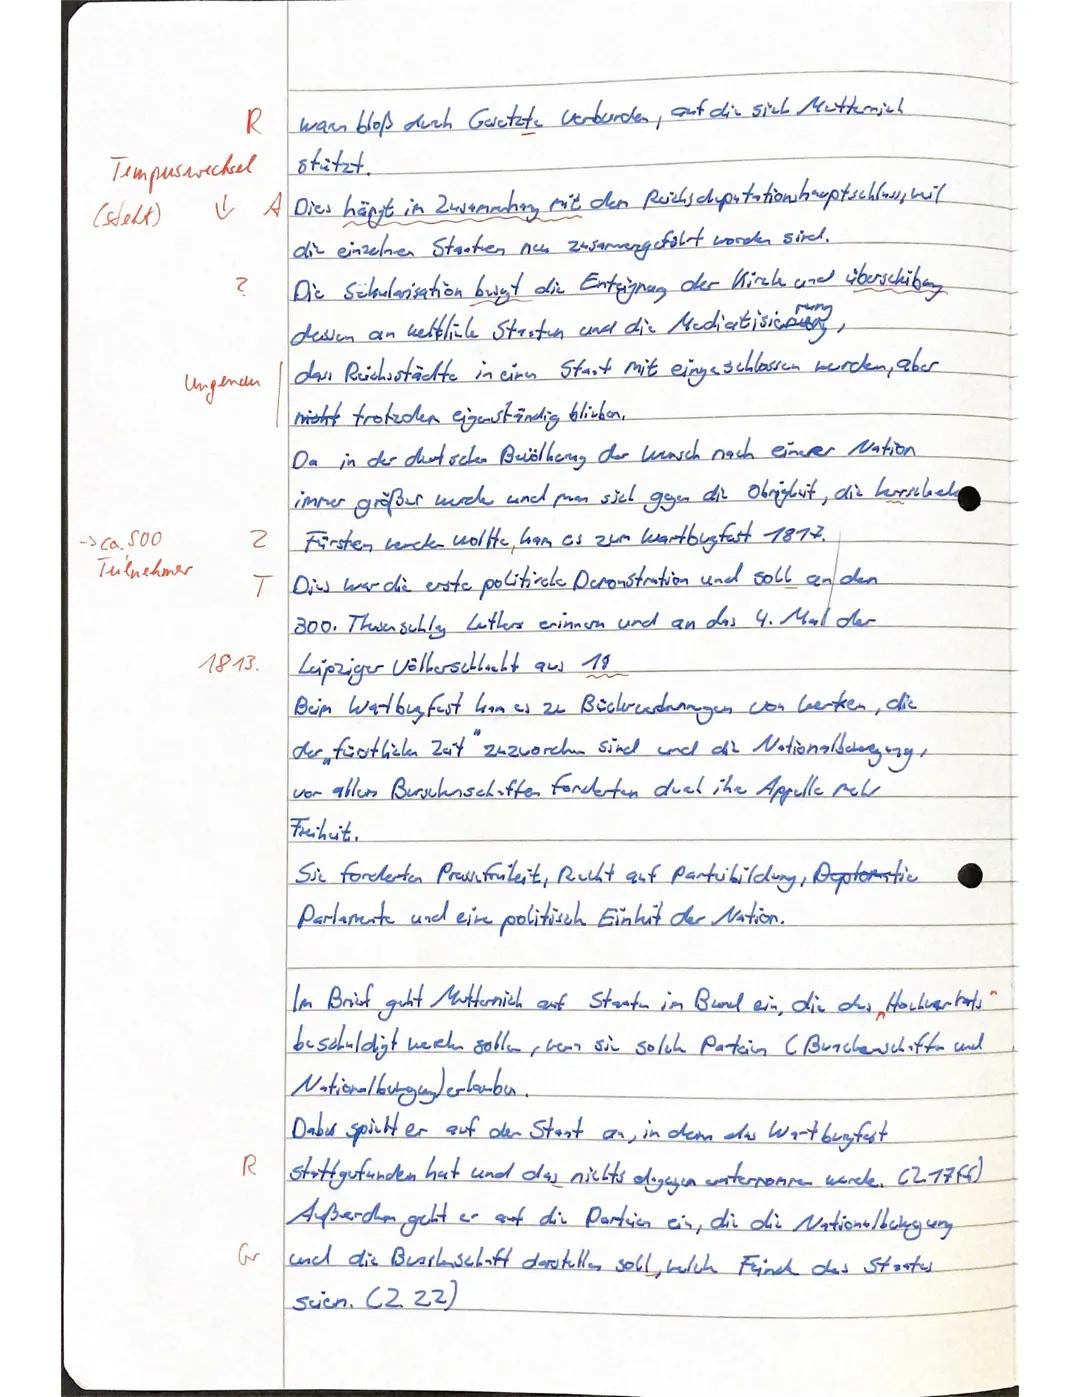 R waren bloß durch Gesetzte verbunden, auf die sich Metternich
Tempuswechsel stützt.
(steht) ↓ A Dies hängt im Zusammenhang mit dem Reichsdeputationshauptschluss, weil
die einzelnen Staaten neu zusammengeführt worden sind.
? Die Säkularisation besagt die Enteignung der Kirche und überschibung
dessen an weltliche Staaten und die Mediatisierung,
Ungenau dass Reichsstädte in einen Staat mit eingeschlossen wurden, aber
nicht trotzdem eigenständig blieben.
Da in der deutschen Bevölkerung der Wunsch nach einer Nation
immer größer wurde und man sich gegen die Obrigkeit, die herrschenden
-> ca. 500 Z Fürsten wenden wollte, kam es zum Wartburgfest 1817.
Teilnehmer
T Dies war die erste politische Demonstration und soll an den
300. Thesenschlag Luthers erinnern und an das 4. Mal der
1813. Leipziger Völkerschlacht aus 18
Beim Wartburgfest kam es zu Bücherverbrennungen von Werken, die
der „fürstlichen Zeit" zuzuordnen sind und die Nationalbewegung,
vor allem Burschenschaften forderten durch ihre Appelle mehr
Freiheit.
Sie forderten Pressefreiheit, Recht auf Parteibildung, Diplomatie
Parlamente und eine politisch Einheit der Nation.
Im Brief geht Metternich auf Staaten im Bund ein, die des „Hochverrats"
beschuldigt werden sollen, wenn sie solch Parteien (Burschenschaften und
Nationalbewegung) erlauben.
Dabei spielt er auf den Staat an, in dem das Wartburgfest
R stattgefunden hat und das nichts dagegen unternommen wurde. (Z. 17ff)
Außerdem geht er auf die Parteien ein, die die Nationalbewegung
Gr und die Burschenschaft darstellen soll, welch Feinde des Staates
seien. (Z. 22)